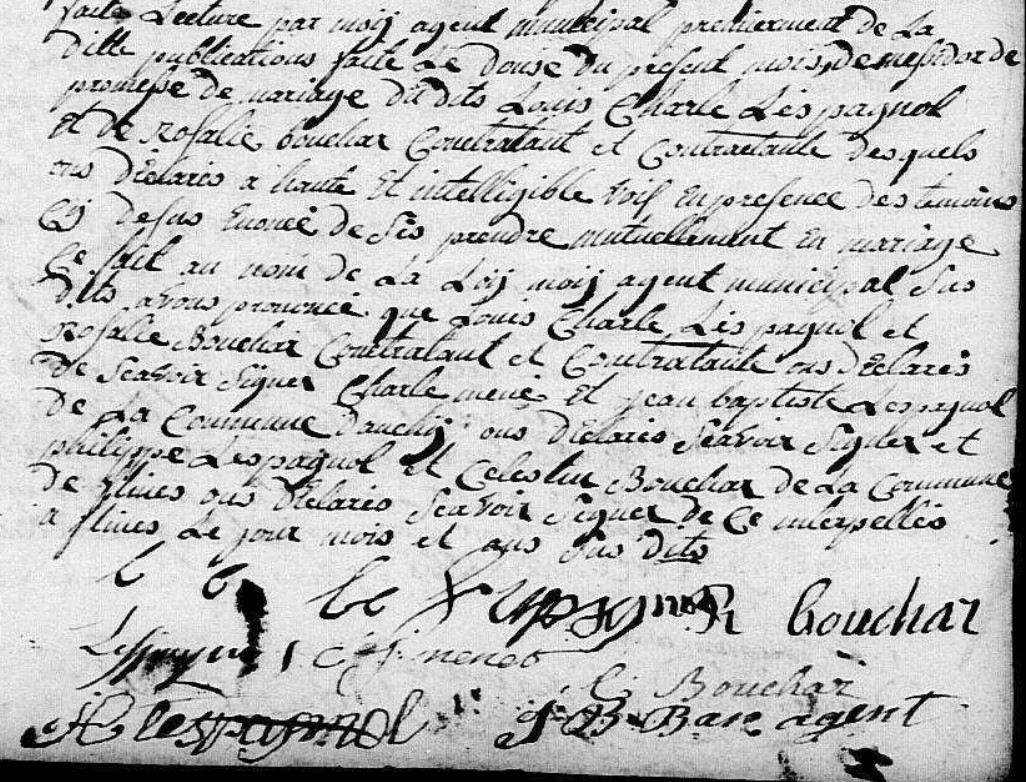 faite Lecture par moÿ agent municipal premierment de La
ditte publications faite Le douse du present mois, de messidor de
promesse de mariage du dits Louis Charle Lespagnol
et de Rosalie bouchar Contratant et Contractante desquels
ons Déclarés a haute Et intelligible voif En presence des temoins
Cÿ desus Enoncé de Ses prendre mutuellement En mariage
Ce fait au nom de La Loÿ moÿ agent municipal Sus
dits avons prononcé que Louis Charle Lespagnol et
Rosalie Bouchar Contratant et Contratante ons Déclarés
De Scavoir Signer Charle mené Et jean baptiste Lespagnol
de La Commune Dauchÿ ons Déclarés Scavoir Signer et
philippe Lespagnol et Celestin Bouchar de La Commune
de flines ons Déclarés Scavoir Signer de Ce interpellés
a flines Le jour mois et ans Sus dits
bouchar
C Bouchar
Lespagnol J B Bar agent